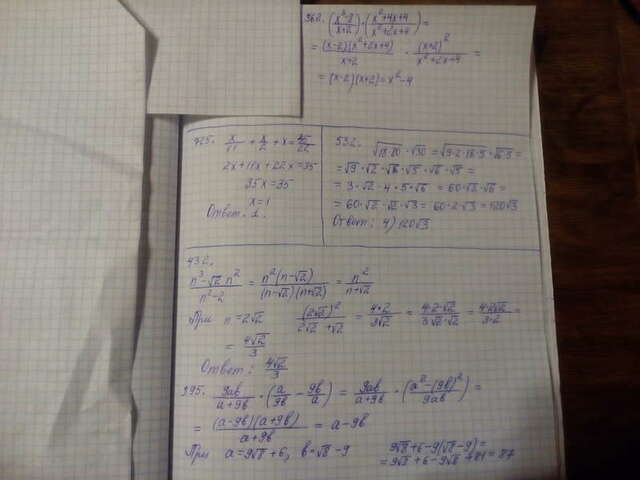 362. (x³-8 / x+2) · (x²+4x+4 / x²+2x+4) =
= (x-2)(x²+2x+4) / x+2 · (x+2)² / x²+2x+4 =
= (x-2)(x+2) = x²-4
x/11 + x/2 + x = 35/22
2x+11x+22x=35
35x=35
x=1
Ответ: 1.
532. √18·80 · √30 = √9·2·16·5 · √6·5 =
= √9 · √2 · √16 · √5 · √6 · √5 =
= 3 · √2 · 4 · 5 · √6 = 60·√2·√6 =
= 60·√2·√2·√3 = 60·2·√3 = 120√3
Ответ: 4) 120√3
432.
n³-√2 n² / n²-2 = n²(n-√2) / (n-√2)(n+√2) = n² / n+√2
При n=2√2 (2√2)² / 2√2+√2 = 4·2 / 3√2 = 4·2·√2 / 3√2·√2 = 4·2√2 / 3·2 =
= 4√2 / 3
Ответ: 4√2 / 3
395. 9ab / a+9b · (a/9b - 9b/a) = 9ab / a+9b · (a²-(9b)² / 9ab) =
= (a-9b)(a+9b) / a+9b = a-9b
При a=9√8+6, b=√8-9 9√8+6-9(√8-9)=
=9√8+6-9√8+81=87